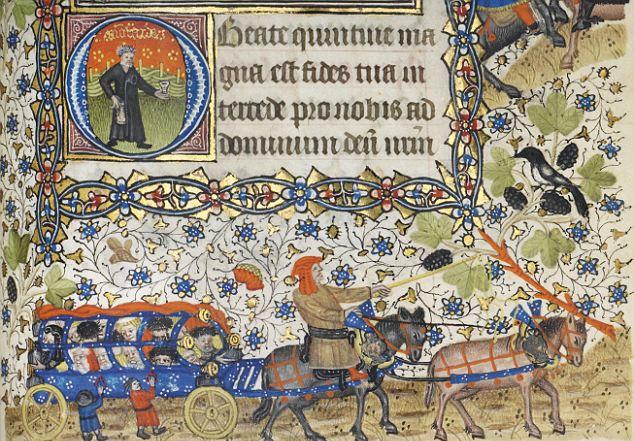 O Beate quintine ma
gna est fides tua in
tercede pro nobis ad
dominum deū nr̄m